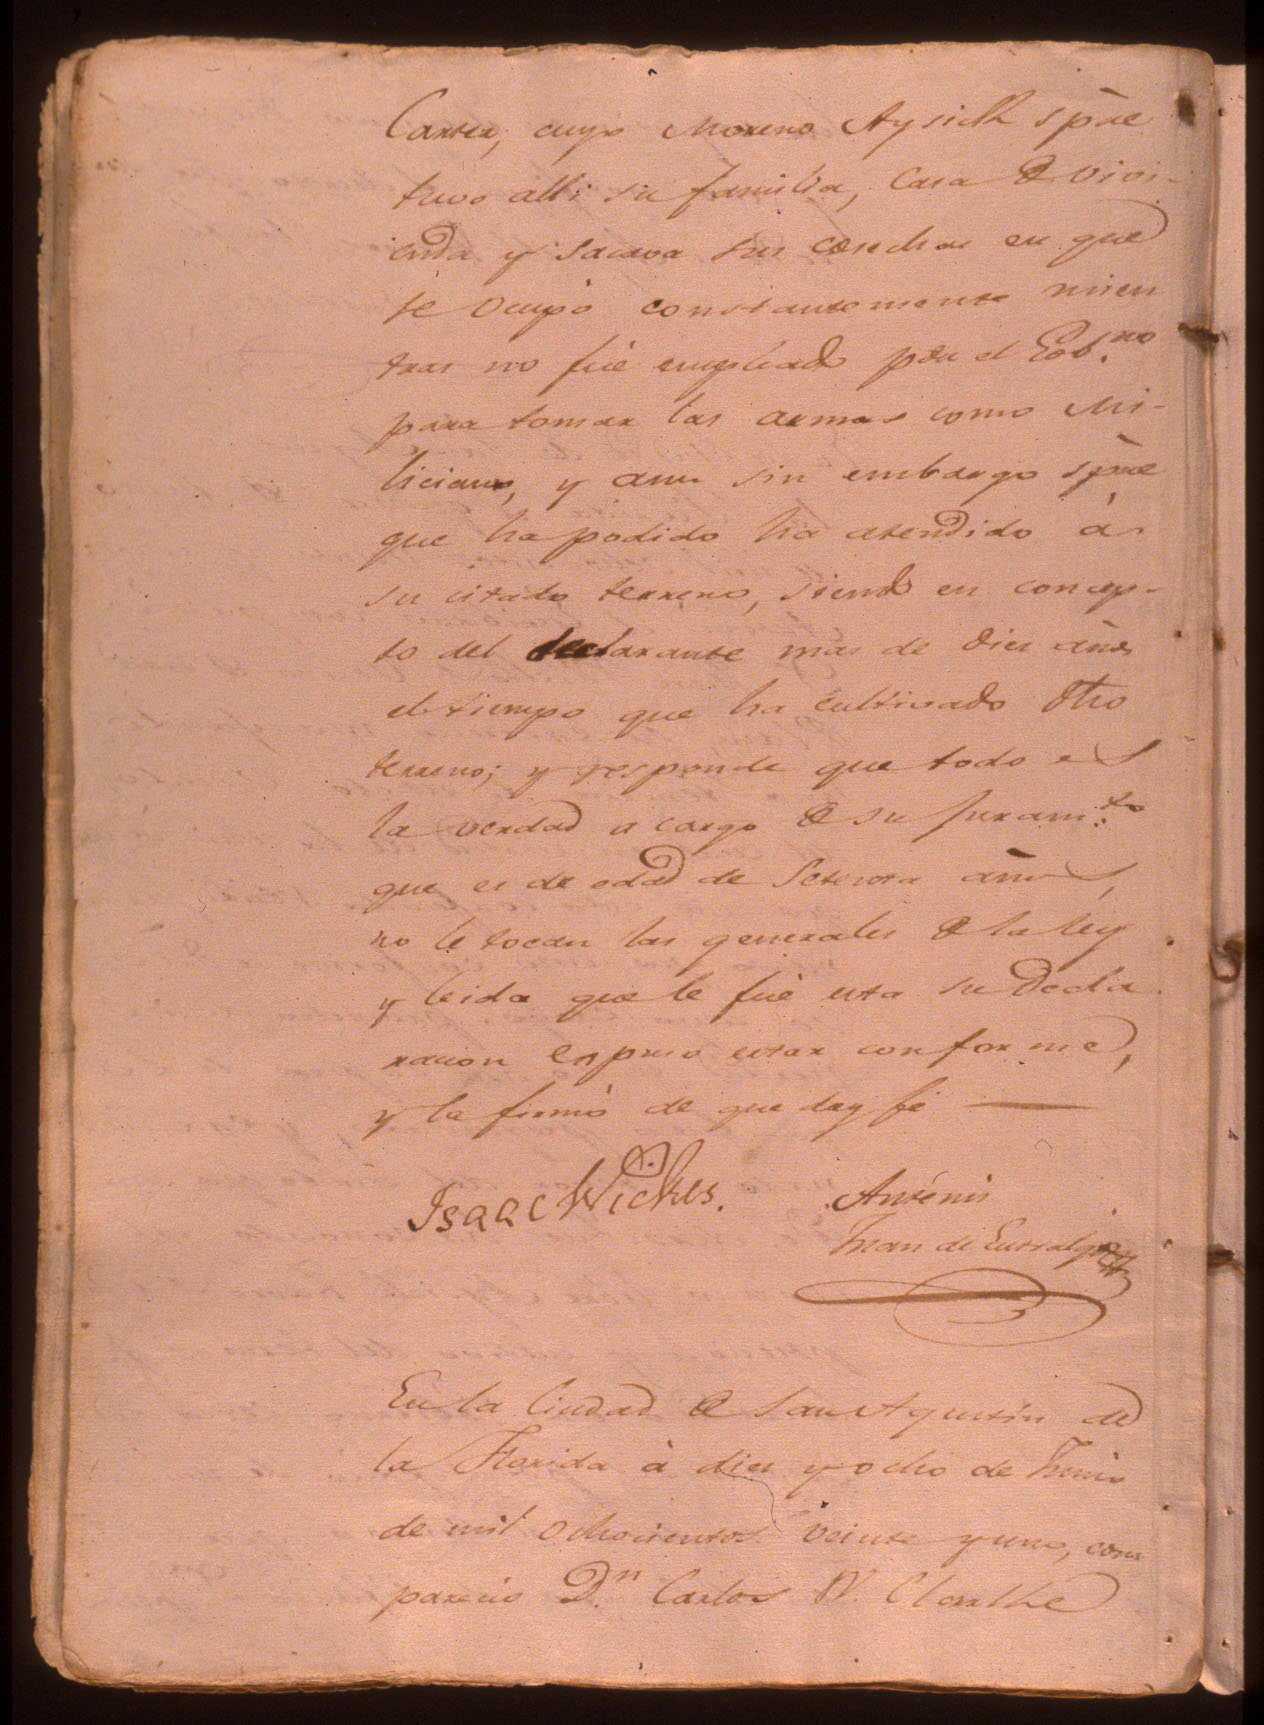 Carter, cuyo Moreno Aysick spre
tuvo alli su familia, Casa de vivi-
enda y sacava sus cosechas en que
se ocupó constantemente mien
tras no fué empleado por el Gob.no
para tomar las armas como Mi-
liciano, y aun sin embargo spre
que ha podido ha atendido á
su citado terreno, siendo en concep-
to del declarante mas de dies años
el tiempo que ha cultivado dho
terreno; y responde que todo es
la verdad a cargo de su juram.to
que es de edad de setenta años,
no le tocan las generales de la ley
y leida que le fué esta su Decla
racion expreso estar conforme,
y la firmó de que doy fé
Isaac Wickes. Antémi
Juan de Entralgo
En la Ciudad de San Agustin de
la Florida à dies y ocho de Junio
de mil ochocientos veinte y uno, com
parecio D.n Carlos W. Clarke